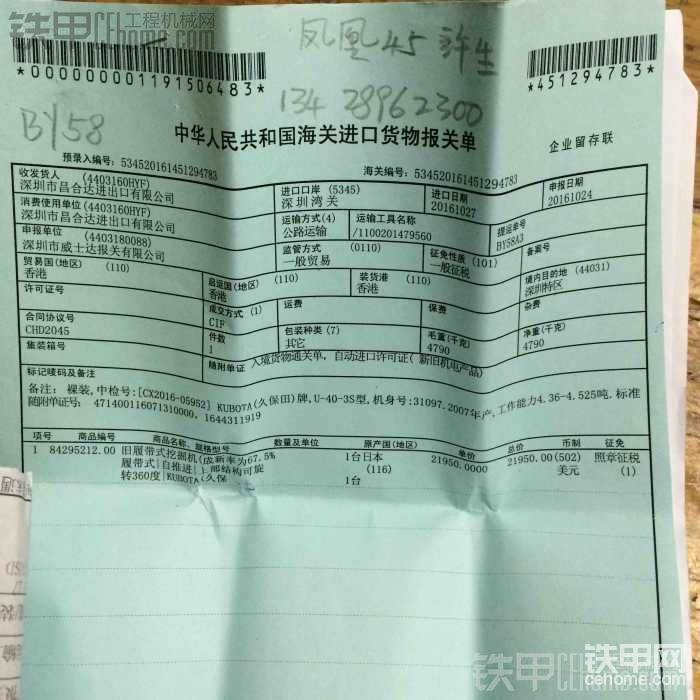 铁甲 工程机械网
cehome.com
凤凰45 許生
*000000001191506483*
*451294783*
134 28962300
BY58
中华人民共和国海关进口货物报关单
企业留存联
预录入编号: 534520161451294783
海关编号: 534520161451294783
收发货人 (4403160HYF)
深圳市昌合达进出口有限公司
进口口岸 (5345)
深圳湾关
进口日期
20161027
申报日期
20161024
消费使用单位 (4403160HYF)
深圳市昌合达进出口有限公司
运输方式(4)
公路运输
运输工具名称
/1100201479560
提运单号
BY58A3
申报单位 (4403180088)
深圳市威士达报关有限公司
监管方式 (0110)
一般贸易
征免性质 (101)
一般征税
备案号
贸易国(地区) (110)
香港
启运国(地区) (110)
香港
装货港 (110)
香港
境内目的地 (44031)
深圳特区
许可证号
成交方式 (1)
CIF
运费
保费
杂费
合同协议号
CHD2045
件数
1
包装种类 (7)
其它
毛重(千克)
4790
净重(千克)
4790
集装箱号
随附单证 入境货物通关单, 自动进口许可证( 新旧机电产品)
标记唛码及备注
备注: 裸装,中检号:[CX2016-05952] KUBOTA(久保田)牌,U-40-3S型,机身号:31097.2007年产,工作能力4.36-4.525吨.标准
随附单证号: 471400116071310000, 1644311919
项号 商品编号 商品名称、规格型号 数量及单位 原产国(地区) 单价 总价 币制 征免
1 84295212.00 旧履带式挖掘机(成新率为67.5% 1台日本 21950.0000 21950.00(502) 照章征税
履带式|自推进|上部结构可旋 (116) 美元 (1)
转360度|KUBOTA(久保 1台
铁甲
铁甲网
cehome.com